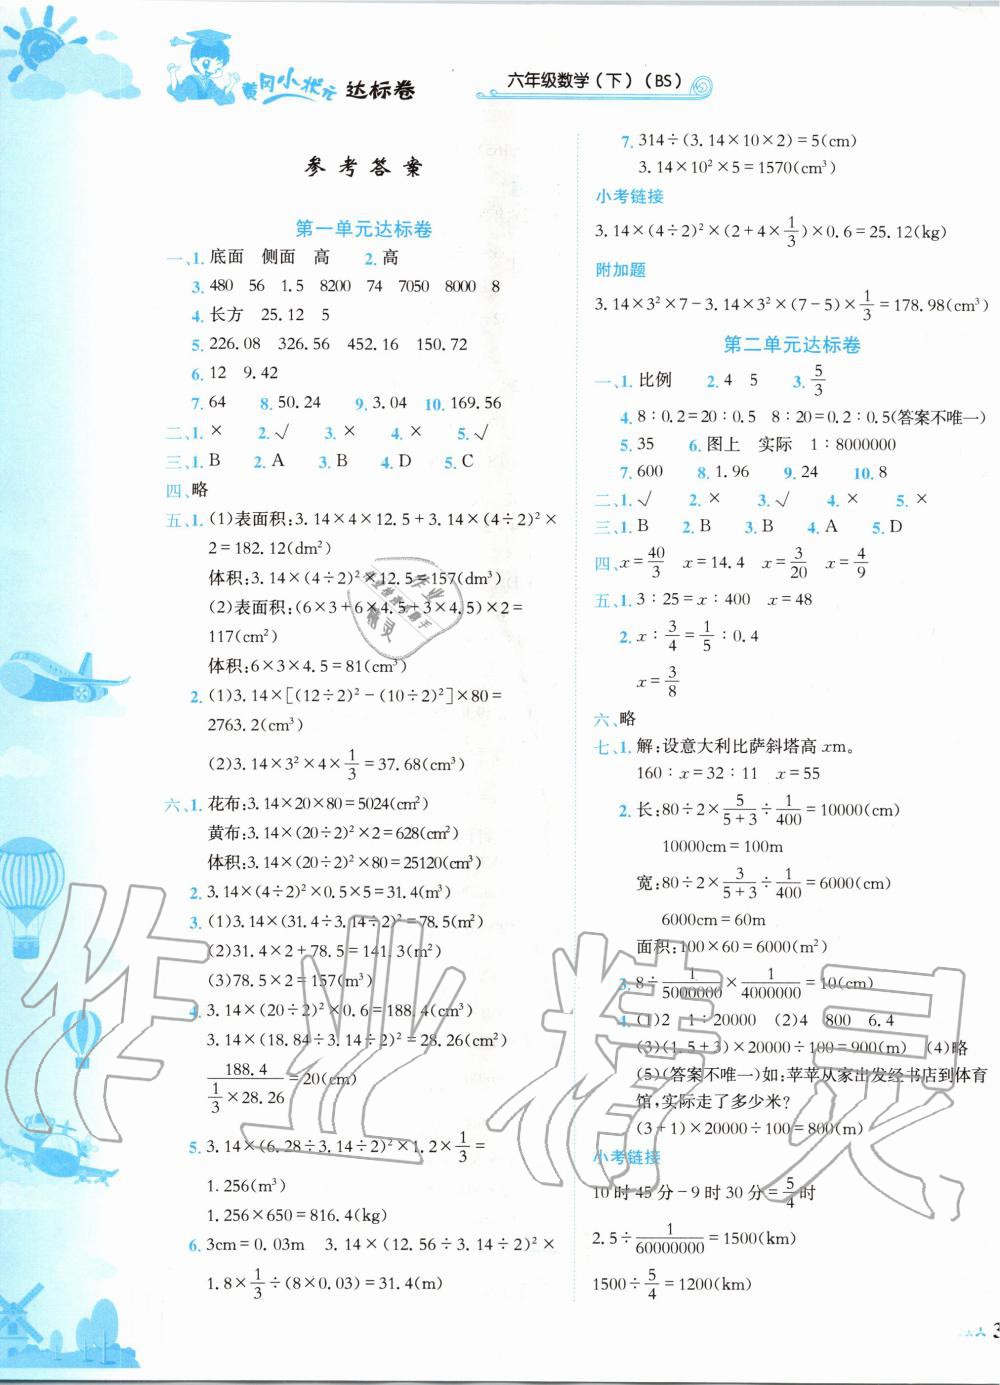 黄冈小状元 达标卷
六年级数学（下）（BS）
参考答案
第一单元达标卷
一、1. 底面 侧面 高 2. 高
3. 480 56 1.5 8200 74 7050 8000 8
4. 长方 25.12 5
5. 226.08 326.56 452.16 150.72
6. 12 9.42
7. 64 8. 50.24 9. 3.04 10. 169.56
二、1. × 2. √ 3. × 4. × 5. √
三、1. B 2. A 3. B 4. D 5. C
四、略
五、1. (1)表面积:3.14×4×12.5+3.14×(4÷2)²×
2=182.12(dm²)
体积:3.14×(4÷2)²×12.5=157(dm³)
(2)表面积:(6×3+6×4.5+3×4.5)×2=
117(cm²)
体积:6×3×4.5=81(cm³)
2. (1)3.14×[(12÷2)²-(10÷2)²]×80=
2763.2(cm³)
(2)3.14×3²×4×1/3=37.68(cm³)
六、1. 花布:3.14×20×80=5024(cm²)
黄布:3.14×(20÷2)²×2=628(cm²)
体积:3.14×(20÷2)²×80=25120(cm³)
2. 3.14×(4÷2)²×0.5×5=31.4(m³)
3. (1)3.14×(31.4÷3.14÷2)²=78.5(m²)
(2)31.4×2+78.5=141.3(m²)
(3)78.5×2=157(m³)
4. 3.14×(20÷2)²×0.6=188.4(cm³)
3.14×(18.84÷3.14÷2)²=28.26(cm²)
188.4/(1/3×28.26)=20(cm)
5. 3.14×(6.28÷3.14÷2)²×1.2×1/3=
1.256(m³)
1.256×650=816.4(kg)
6. 3cm=0.03m 3.14×(12.56÷3.14÷2)²×
1.8×1/3÷(8×0.03)=31.4(m)
7. 314÷(3.14×10×2)=5(cm)
3.14×10²×5=1570(cm³)
小考链接
3.14×(4÷2)²×(2+4×1/3)×0.6=25.12(kg)
附加题
3.14×3²×7-3.14×3²×(7-5)×1/3=178.98(cm³)
第二单元达标卷
一、1. 比例 2. 4 5 3. 5/3
4. 8:0.2=20:0.5 8:20=0.2:0.5(答案不唯一)
5. 35 6. 图上 实际 1:8000000
7. 600 8. 1.96 9. 24 10. 8
二、1. √ 2. × 3. √ 4. × 5. ×
三、1. B 2. B 3. B 4. A 5. D
四、x=40/3 x=14.4 x=3/20 x=4/9
五、1. 3:25=x:400 x=48
2. x:3/4=1/5:0.4
x=3/8
六、略
七、1. 解:设意大利比萨斜塔高 xm。
160:x=32:11 x=55
2. 长:80÷2×5/(5+3)÷1/400=10000(cm)
10000cm=100m
宽:80÷2×3/(5+3)÷1/400=6000(cm)
6000cm=60m
面积:100×60=6000(m²)
3. 8÷1/5000000×1/4000000=10(cm)
4. (1)2 1:20000 (2)4 800 6.4
(3)(1.5+3)×20000÷100=900(m) (4)略
(5)(答案不唯一)如:苹苹从家出发经书店到体育
馆,实际走了多少米?
(3+1)×20000÷100=800(m)
小考链接
10时45分-9时30分=5/4时
2.5÷1/60000000=1500(km)
1500÷5/4=1200(km)
作业精灵
作业精灵